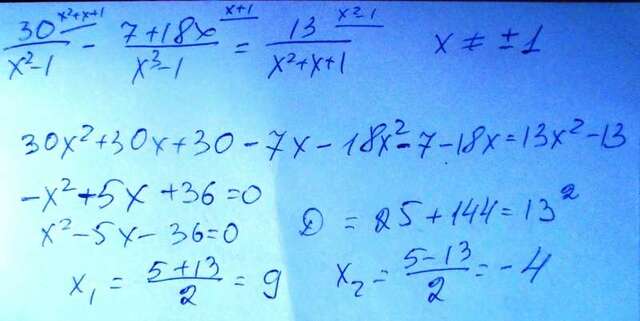 30^{x²+x+1}/(x²-1) - (7+18x)^{x+1}/(x³-1) = 13^{x²-1}/(x²+x+1)   x ≠ ±1
30x²+30x+30-7x-18x²-7-18x=13x²-13
-x²+5x+36=0
x²-5x-36=0   D=25+144=13²
x₁=(5+13)/2=9   x₂=(5-13)/2=-4